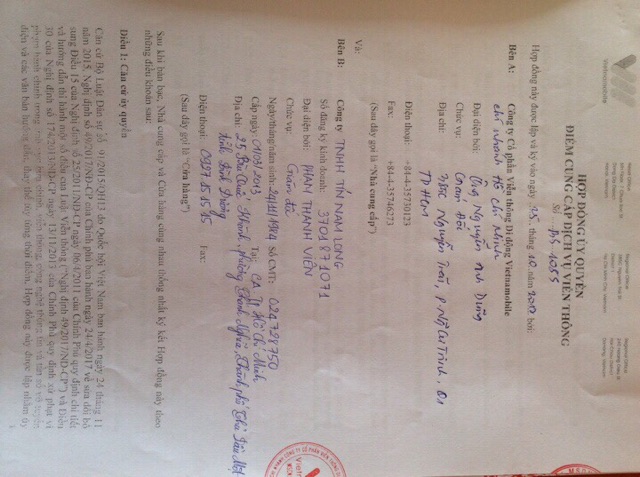 Vietnamobile
HỢP ĐỒNG ỦY QUYỀN
ĐIỂM CUNG CẤP DỊCH VỤ VIỄN THÔNG
Số
Hợp đồng này được lập và ký vào ngày 25 tháng 10 năm 2017 bởi:
Bên A: Công ty Cổ phần Viễn thông Di động Vietnamobile
chi nhánh Hồ Chí Minh
Đại diện bởi: Ông Nguyễn Anh Dũng
Chức vụ: Giám Đốc
Địa chỉ: Nguyễn Trãi, P. Nguyễn Cư Trinh, Q1
TP HCM
Điện thoại: +84-4-35730123
Fax: +84-4-35746273
(Sau đây gọi là “Nhà cung cấp”)
Và:
Bên B: Công ty TNHH TÍN NAM LONG
Số đăng ký kinh doanh: 3701871071
Đại diện bởi: PHAN THANH VIÊN
Chức vụ: Giám đốc
Ngày/tháng/năm sinh: 24/11/1984 Số CMT: 024728750
Cấp ngày: 01/03/2013 Tại: CA TP Hồ Chí Minh
Địa chỉ: 25 Bùi Quốc Khánh, phường Chánh Nghĩa, Thành phố Thủ Dầu Một
tỉnh Bình Dương
Điện thoại: Fax:
(Sau đây gọi là “Cửa hàng”)
Sau khi bàn bạc, Nhà cung cấp và Cửa hàng cùng nhau thống nhất ký kết Hợp đồng này theo
những điều khoản sau:
Điều 1: Căn cứ ủy quyền
Căn cứ Bộ Luật Dân sự số 91/2015/QH13 do Quốc hội Việt Nam ban hành ngày 24 tháng 11
năm 2015, Nghị định số 49/2017/NĐ-CP của Chính phủ ban hành ngày 24/4/2017 về sửa đổi bổ
sung Điều 15 của Nghị định số 25/2011/NĐ-CP ngày 06/4/2011 của Chính Phủ quy định chi tiết
và hướng dẫn thi hành một số điều của Luật Viễn thông (“Nghị định 49/2017/NĐ-CP”) và Điều
30 của Nghị định số 174/2013/NĐ-CP ngày 13/11/2013 của Chính Phủ quy định xử phạt vi
phạm hành chính trong lĩnh vực bưu chính, viễn thông, công nghệ thông tin và tần số vô tuyến
điện và các văn bản hướng dẫn, thay thế tùy từng thời điểm, Hợp đồng này được lập nhằm ủy